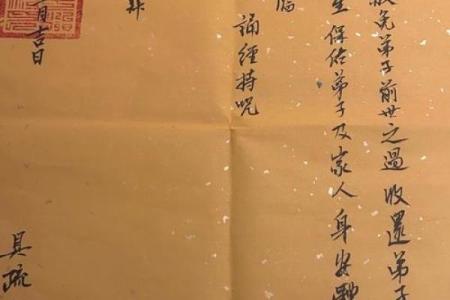 免弟子前世之過 收還弟子
保佑弟子及家人 身安
誦經持呪
月吉日
具疏